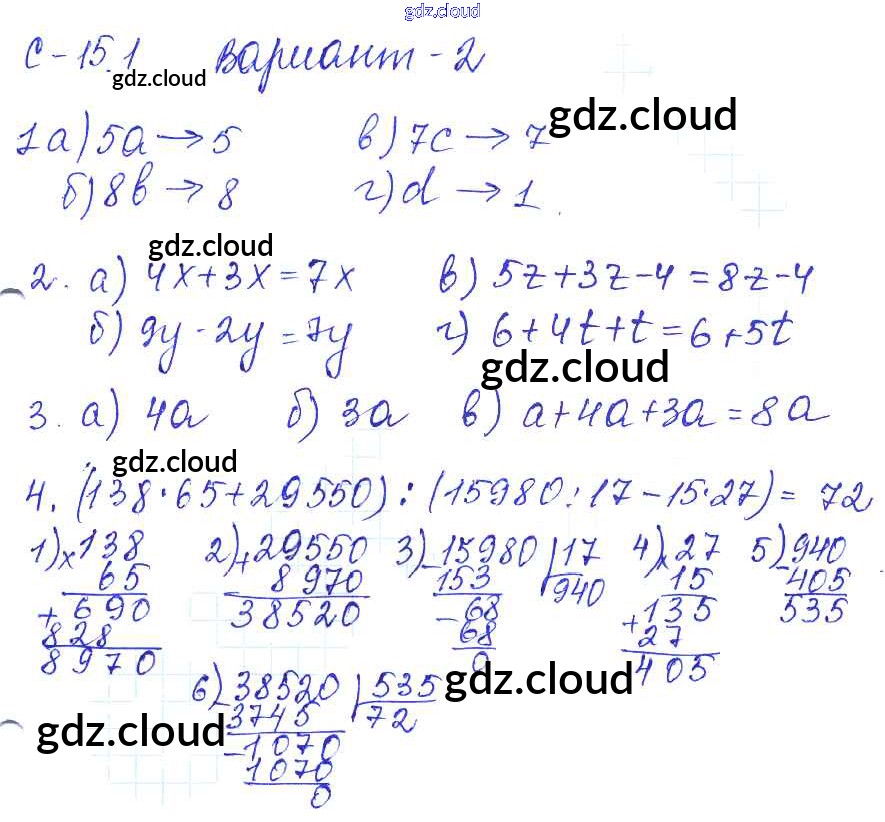 gdz.cloud
С-15.1 Вариант-2
gdz.cloud
gdz.cloud
1 а) 5a → 5 в) 7c → 7
б) 8b → 8 г) d → 1
gdz.cloud
2. а) 4x+3x=7x в) 5z+3z-4=8z-4
б) 9y-2y=7y г) 6+4t+t=6+5t
gdz.cloud
3. а) 4a б) 3a в) a+4a+3a=8a
gdz.cloud
4. (138·65+29550):(15980:17-15·27)=72
1) ×138 2) +29550 3) -15980 | 17 4) ×27 5) -940
65 8970 153 940 15 405
+690 38520 -68 +135 535
828 68 27
8970 0 405
6) -38520 | 535 gdz.cloud gdz.cloud
3745 72
gdz.cloud -1070
1070
0